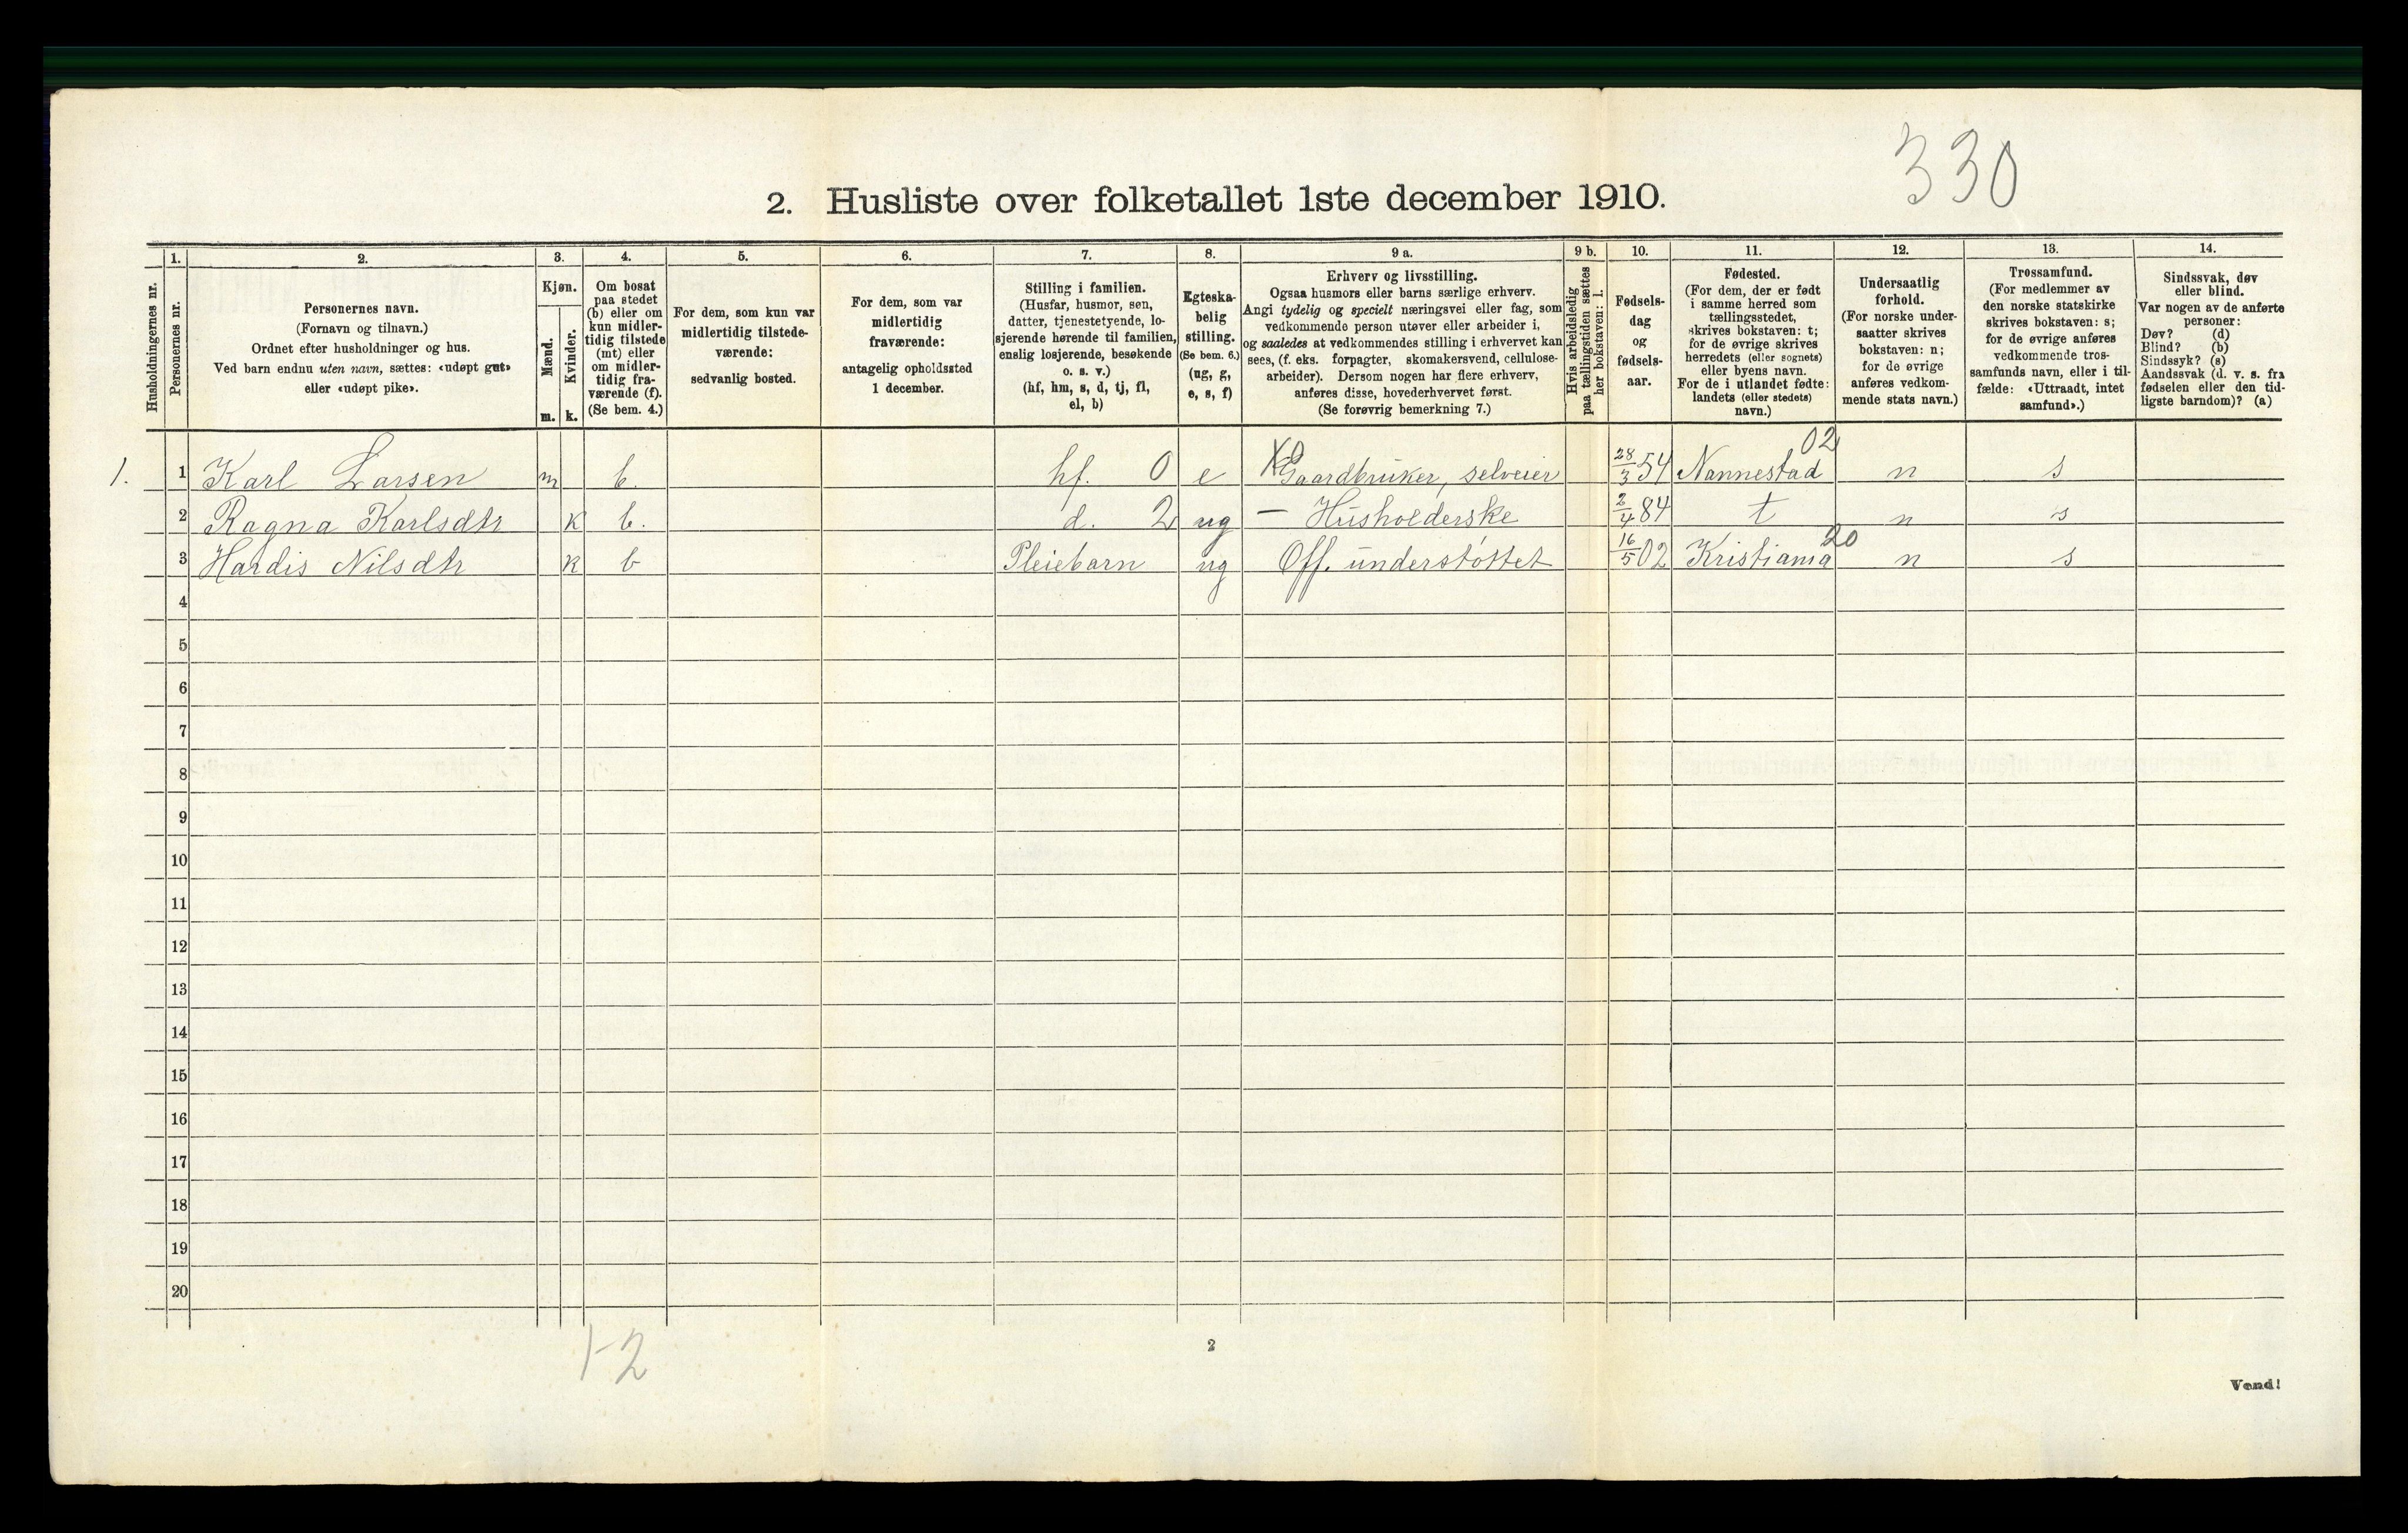 330
2. Husliste over folketallet 1ste december 1910.
Husholdningernes nr.
1.
Personernes nr.
2.
Personernes navn.
(Fornavn og tilnavn.)
Ordnet efter husholdninger og hus.
Ved barn endnu uten navn, sættes: «udøpt gut»
eller «udøpt pike».
3.
Kjøn.
Mænd.
Kvinder.
m. k.
4.
Om bosat
paa stedet
(b) eller om
kun midler-
tidig tilstede
(mt) eller
om midler-
tidig fra-
værende (f).
(Se bem. 4.)
5.
For dem, som kun var
midlertidig tilstede-
værende:
sedvanlig bosted.
6.
For dem, som var
midlertidig
fraværende:
antagelig opholdssted
1 december.
7.
Stilling i familien.
(Husfar, husmor, søn,
datter, tjenestetyende, lo-
sjerende hørende til familien,
enslig losjerende, besøkende
o. s. v.)
(hf, hm, s, d, tj, fl,
el, b)
8.
Egteska-
belig
stilling.
(Se bem. 6.)
(ug, g,
e, s, f)
9 a.
Erhverv og livsstilling.
Ogsaa husmors eller barns særlige erhverv.
Angi tydelig og specielt næringsvei eller fag, som
vedkommende person utøver eller arbeider i,
og saaledes at vedkommendes stilling i erhvervet kan
sees, (f. eks. forpagter, skomakersvend, cellulose-
arbeider). Dersom nogen har flere erhverv,
anføres disse, hovederhvervet først.
(Se forøvrig bemerkning 7.)
9 b.
Hvis arbeidsledig
paa tællingstiden sættes
her bokstaven: l.
10.
Fødsels-
dag
og
fødsels-
aar.
11.
Fødested.
(For dem, der er født
i samme herred som
tællingsstedet,
skrives bokstaven: t;
for de øvrige skrives
herredets (eller sognets)
eller byens navn.
For de i utlandet fødte:
landets (eller stedets)
navn.)
12.
Undersaatlig
forhold.
(For norske under-
saatter skrives
bokstaven: n;
for de øvrige
anføres vedkom-
mende stats navn.)
13.
Trossamfund.
(For medlemmer av
den norske statskirke
skrives bokstaven: s;
for de øvrige anføres
vedkommende tros-
samfunds navn, eller i til-
fælde: «Uttraadt, intet
samfund».)
14.
Sindssvak, døv
eller blind.
Var nogen av de anførte
personer:
Døv? (d)
Blind? (b)
Sindssyk? (s)
Aandssvak (d. v. s. fra
fødselen eller den tid-
ligste barndom)? (a)
1. 1 Karl Larsen m b. hf. 0 e Gaardbruker, selveier 28/3 54 Nannestad 02 n s
2 Ragna Karlsdtr k b. d. 2 ug — Husholderske 2/4 84 t n s
3 Hardis Nilsdtr k b Pleiebarn ug Off. understøttet 16/5 02 Kristiania 20 n s
4
5
6
7
8
9
10
11
12
13
14
15
16
17
18
19
20
1-2
2
Vend!